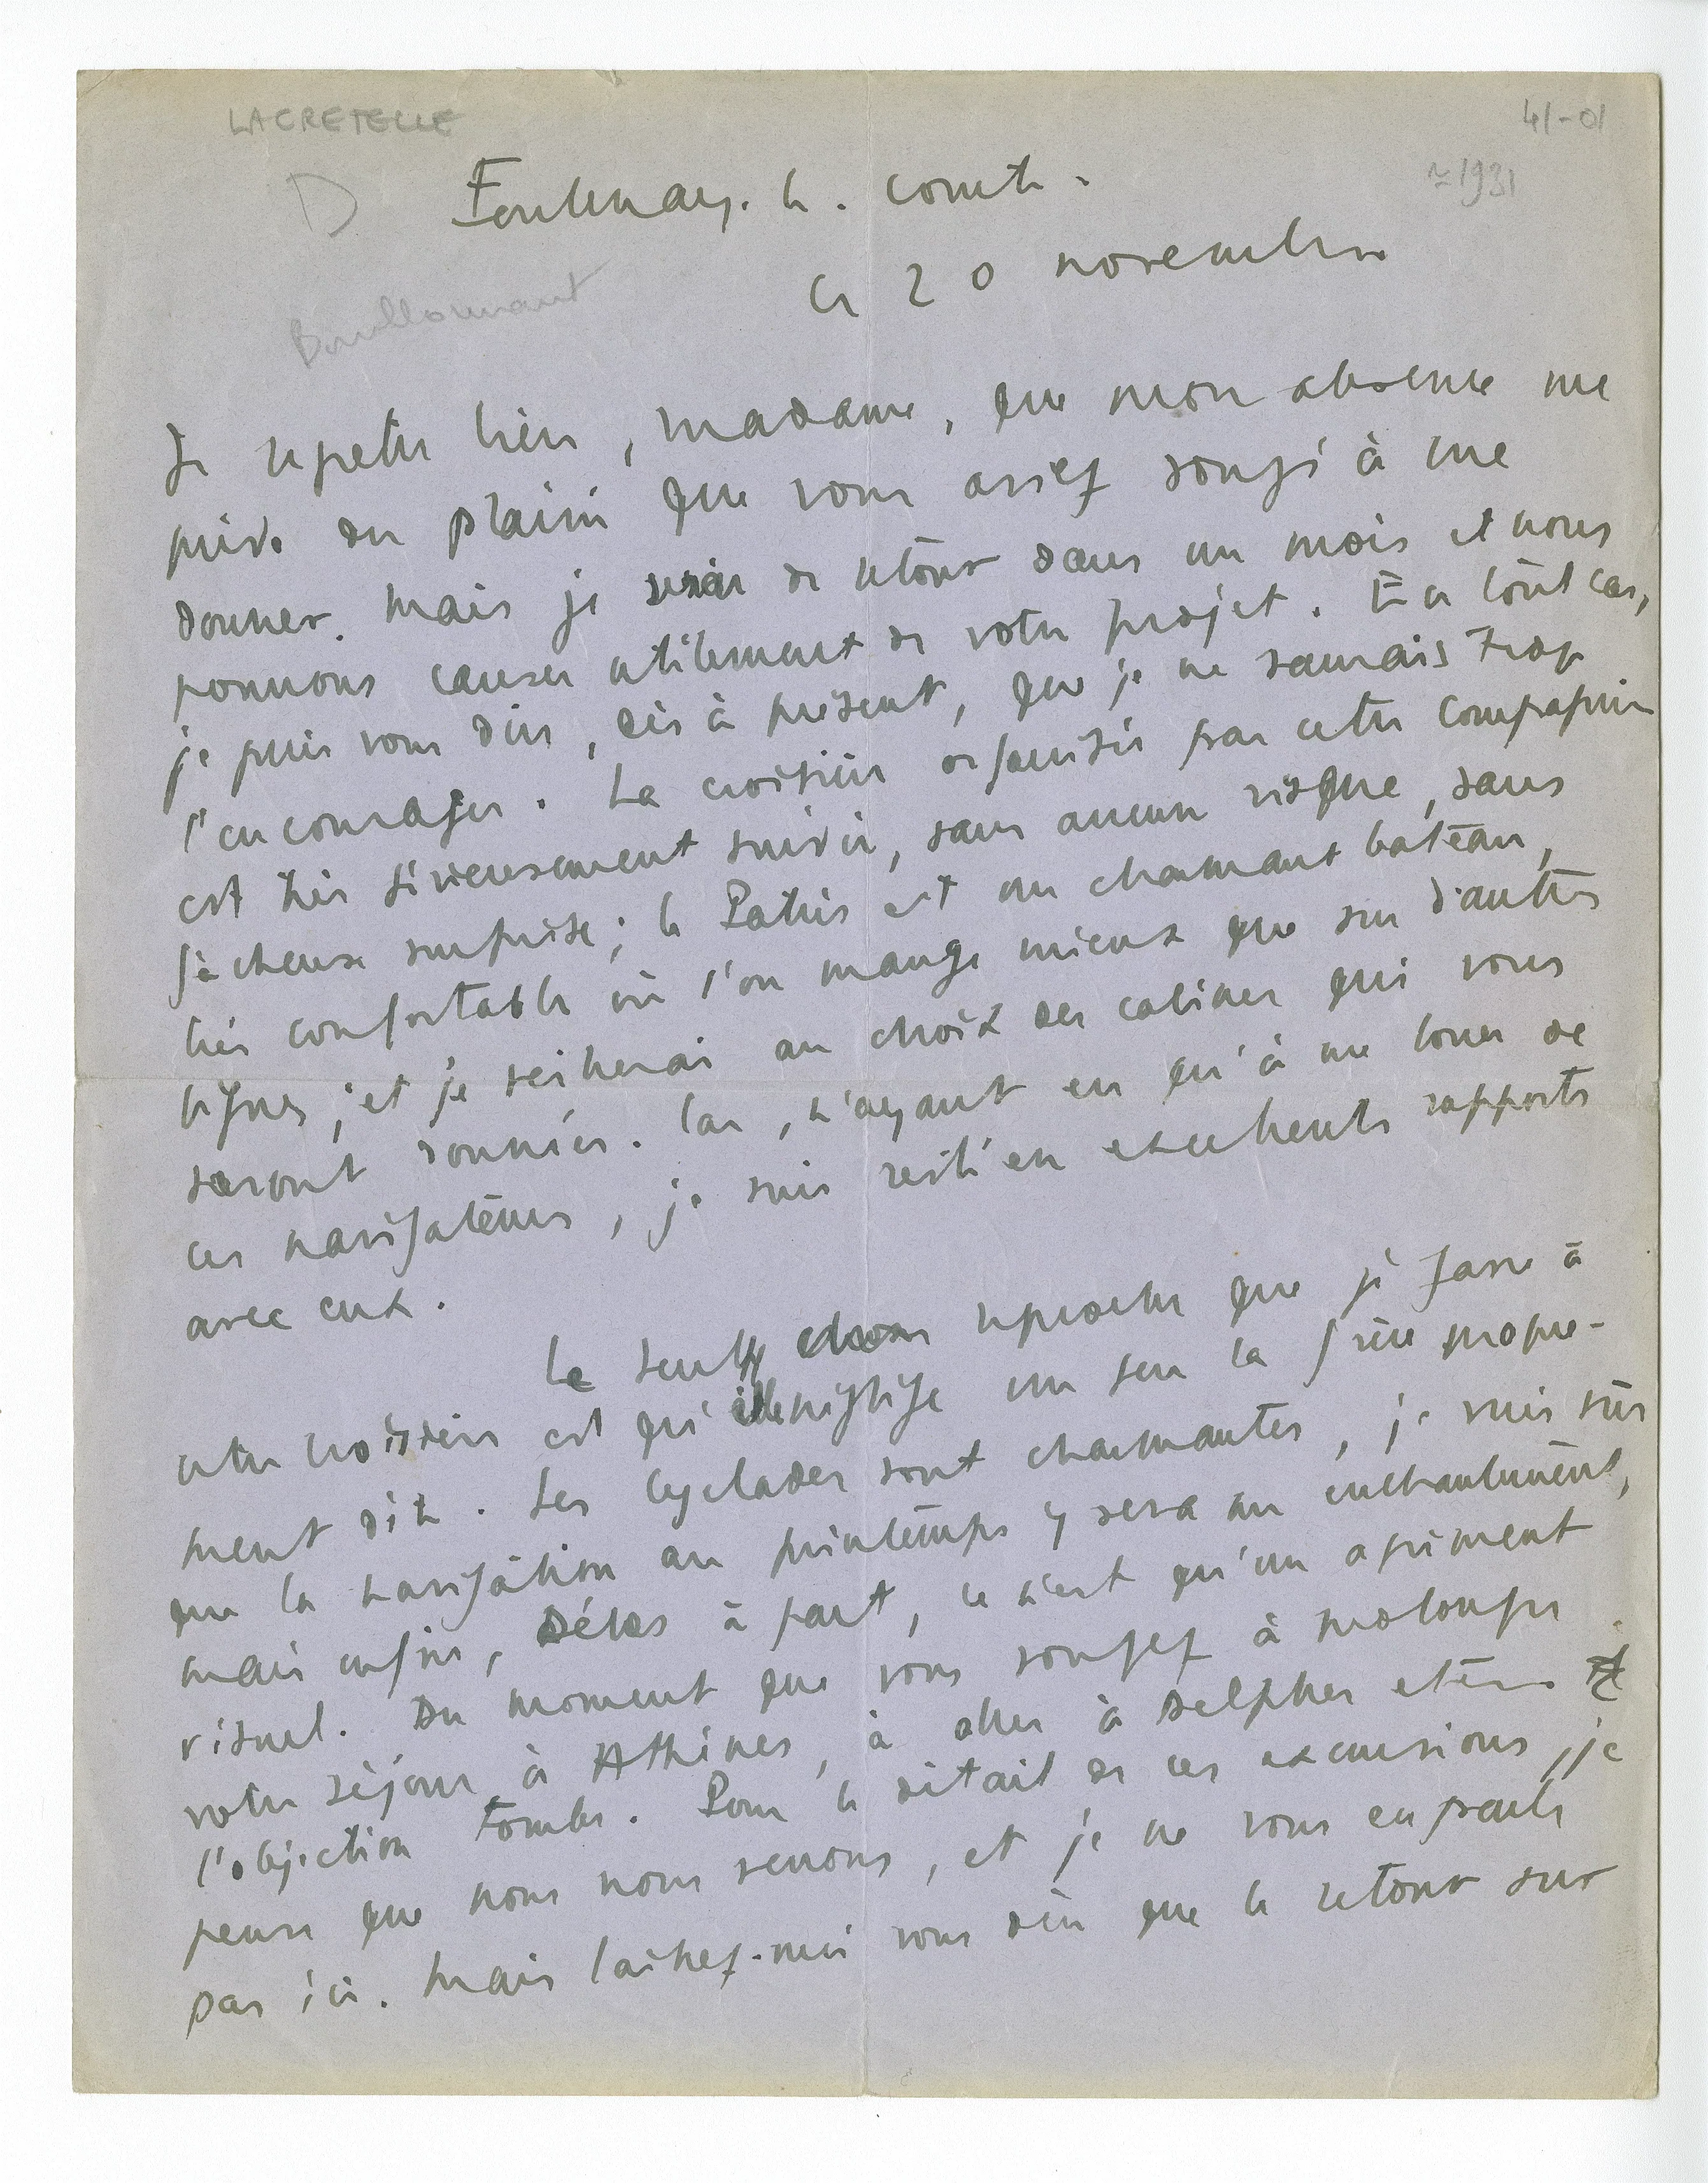 LACRETELLE
41-01
D
≈1931
Fontenay. le. comte.
Ce 20 novembre
Bouillonnant
Je regrette bien, madame, que mon absence me
prive du plaisir que vous aviez songé à me
donner. Mais je serai de retour dans un mois et nous
pourrons causer utilement de votre projet. En tout cas,
je puis vous dire, dès à présent, que je ne saurais trop
l'encourager. La croisière organisée par cette compagnie
est très sérieusement suivie, sans aucun risque, sans
fâcheuse surprise; le Patris est un charmant bateau,
très confortable où l'on mange mieux que sur d'autres
lignes; et je veillerai au choix des cabines qui vous
seront données. Car, n'ayant eu qu'à me louer de
ces navigateurs, je suis resté en excellents rapports
avec eux.
Le seul reproche que je fasse à
cette croisière est qu'elle néglige un peu la Grèce propre-
ment dite. Les Cyclades sont charmantes, je suis sûr
que la navigation au printemps y sera un enchantement,
mais enfin, Délos à part, ce n'est qu'un agrément
visuel. Du moment que vous songez à prolonger
votre séjour à Athènes, à aller à Delphes etc...
l'objection tombe. Pour le détail de ces excursions, je
pense que nous nous verrons, et je ne vous en parle
pas ici. Mais laissez-moi vous dire que le retour sur